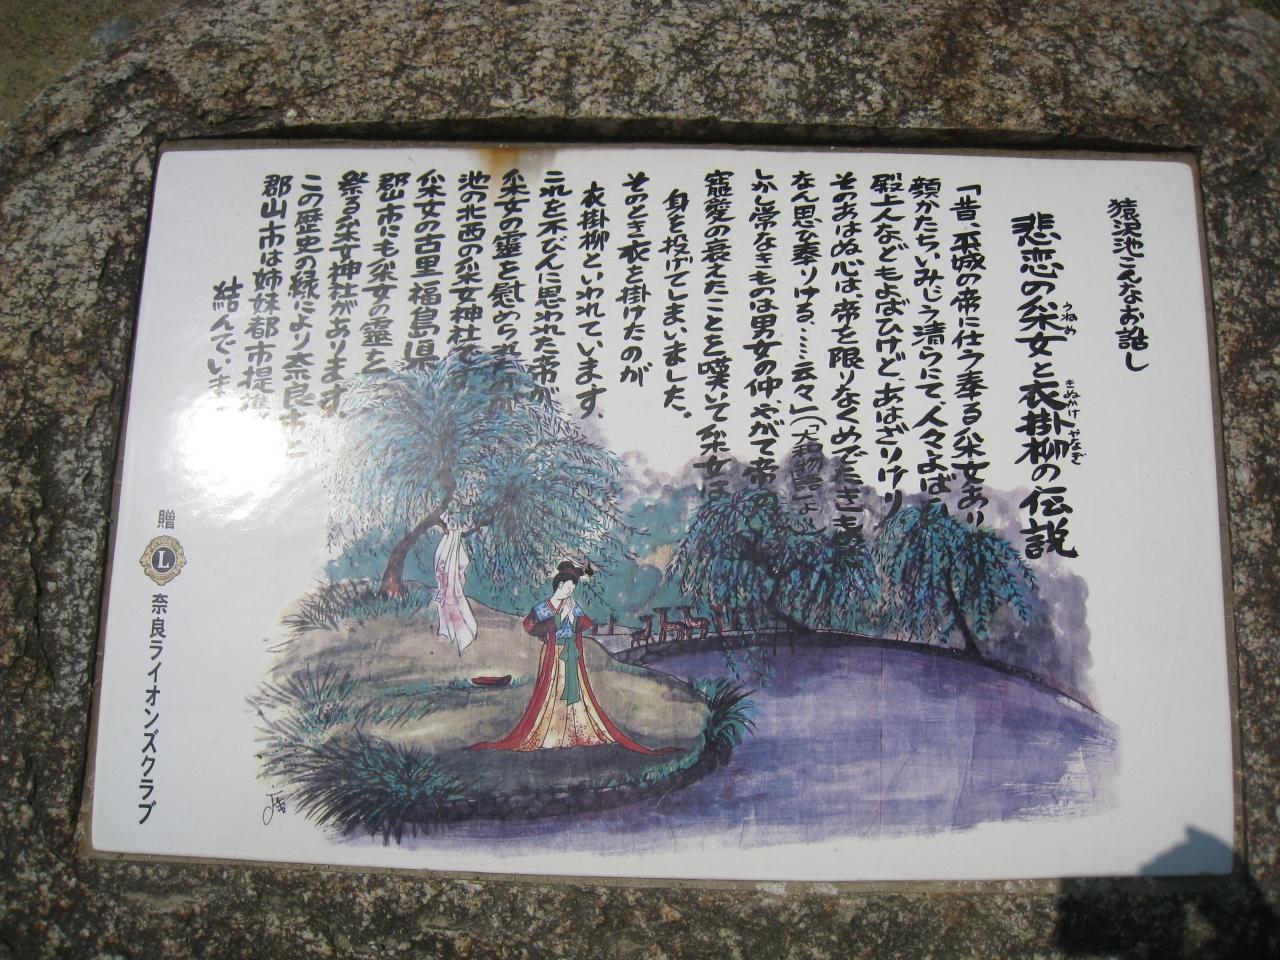 猿沢池こんなお話し
悲恋の采女と衣掛柳の伝説
うねめ
きぬかけ やなぎ
「昔、平城の帝に仕う奉る采女あり
顔かたちいみじう清らにて、人々よばひ
殿上人などもよばひけど、あはざりけり
そのあはぬ心は、帝を限りなくめでたきも
なん思ひ奉りける、……云々」(「大和物語」より
しかし常なきものは男女の仲、やがて帝の
寵愛の衰えたことを嘆いて采女は
身を投げてしまいました。
そのとき衣を掛けたのが
衣掛柳といわれています。
これを不びんに思われた帝が
采女の靈を慰められ
池の北西の采女神社です
采女の古里福島県
郡山市にも采女の靈を
祭る采女神社があります。
この歴史の縁により奈良市と
郡山市は姉妹都市提携
結んでいます
贈
L
奈良ライオンズクラブ